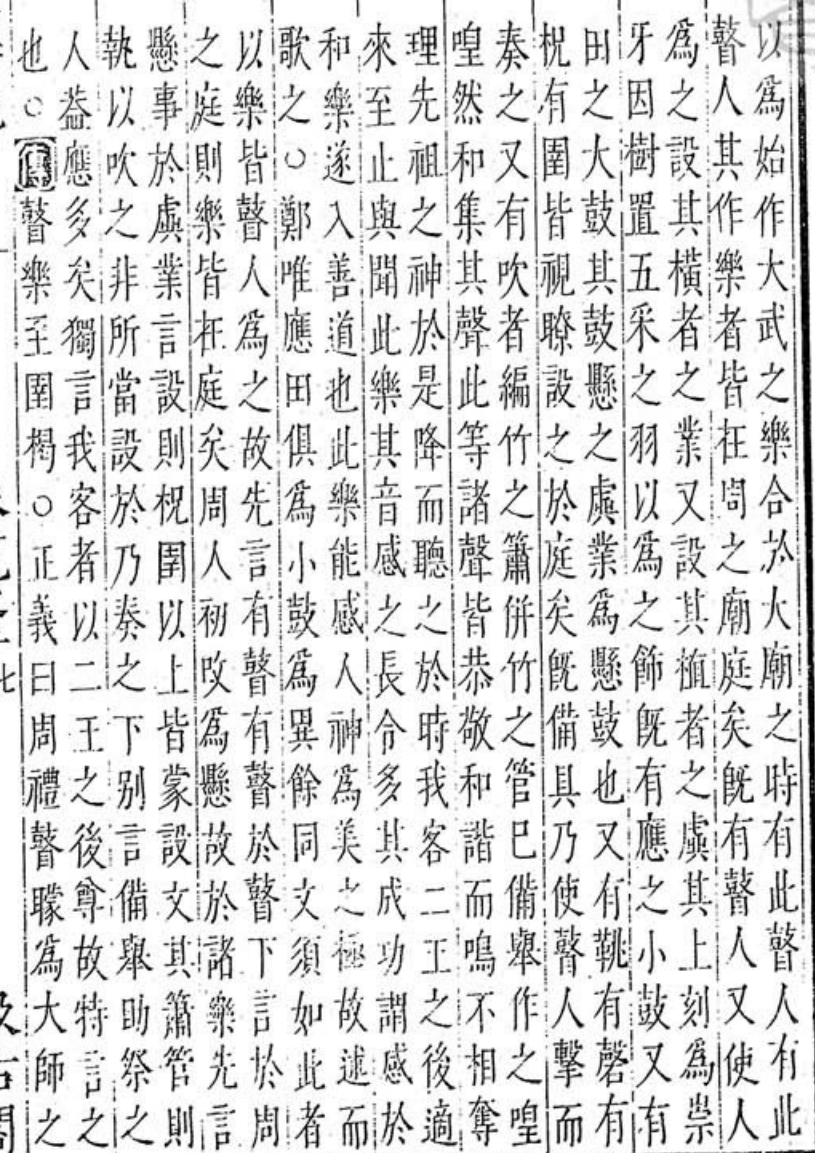 以爲始作大武之樂合於大廟之時有此瞽人有此
瞽人其作樂者皆在周之廟庭矣旣有瞽人又使人
爲之設其橫者之業又設其植者之虡其上刻爲崇
牙因樹置五采之羽以爲之飾旣有應之小鼓又有
田之大鼓其鼓懸之虡業爲懸鼓也又有鞉有磬有
柷有圉皆視瞭設之於庭矣旣備具乃使瞽人擊而
奏之又有吹者編竹之簫併竹之管已備舉作之喤
喤然和集其聲此等諸聲皆恭敬和諧而鳴不相奪
理先祖之神於是降而聽之於時我客二王之後適
來至止與聞此樂其音感之長令多其成功謂感於
和樂遂入善道也此樂能感人神爲美之極故述而
歌之○鄭唯應田俱爲小鼓爲異餘同文須如此者
以樂皆瞽人爲之故先言有瞽有瞽於瞽下言於周
之庭則樂皆在庭矣周人初改爲懸故於諸樂先言
懸事於虡業言設則柷圉以上皆蒙設文其簫管則
執以吹之非所當設於乃奏之下別言備舉助祭之
人蓋應多矣獨言我客者以二王之後尊故特言之
也○傳瞽樂至圉楬○正義曰周禮瞽矇爲大師之
七